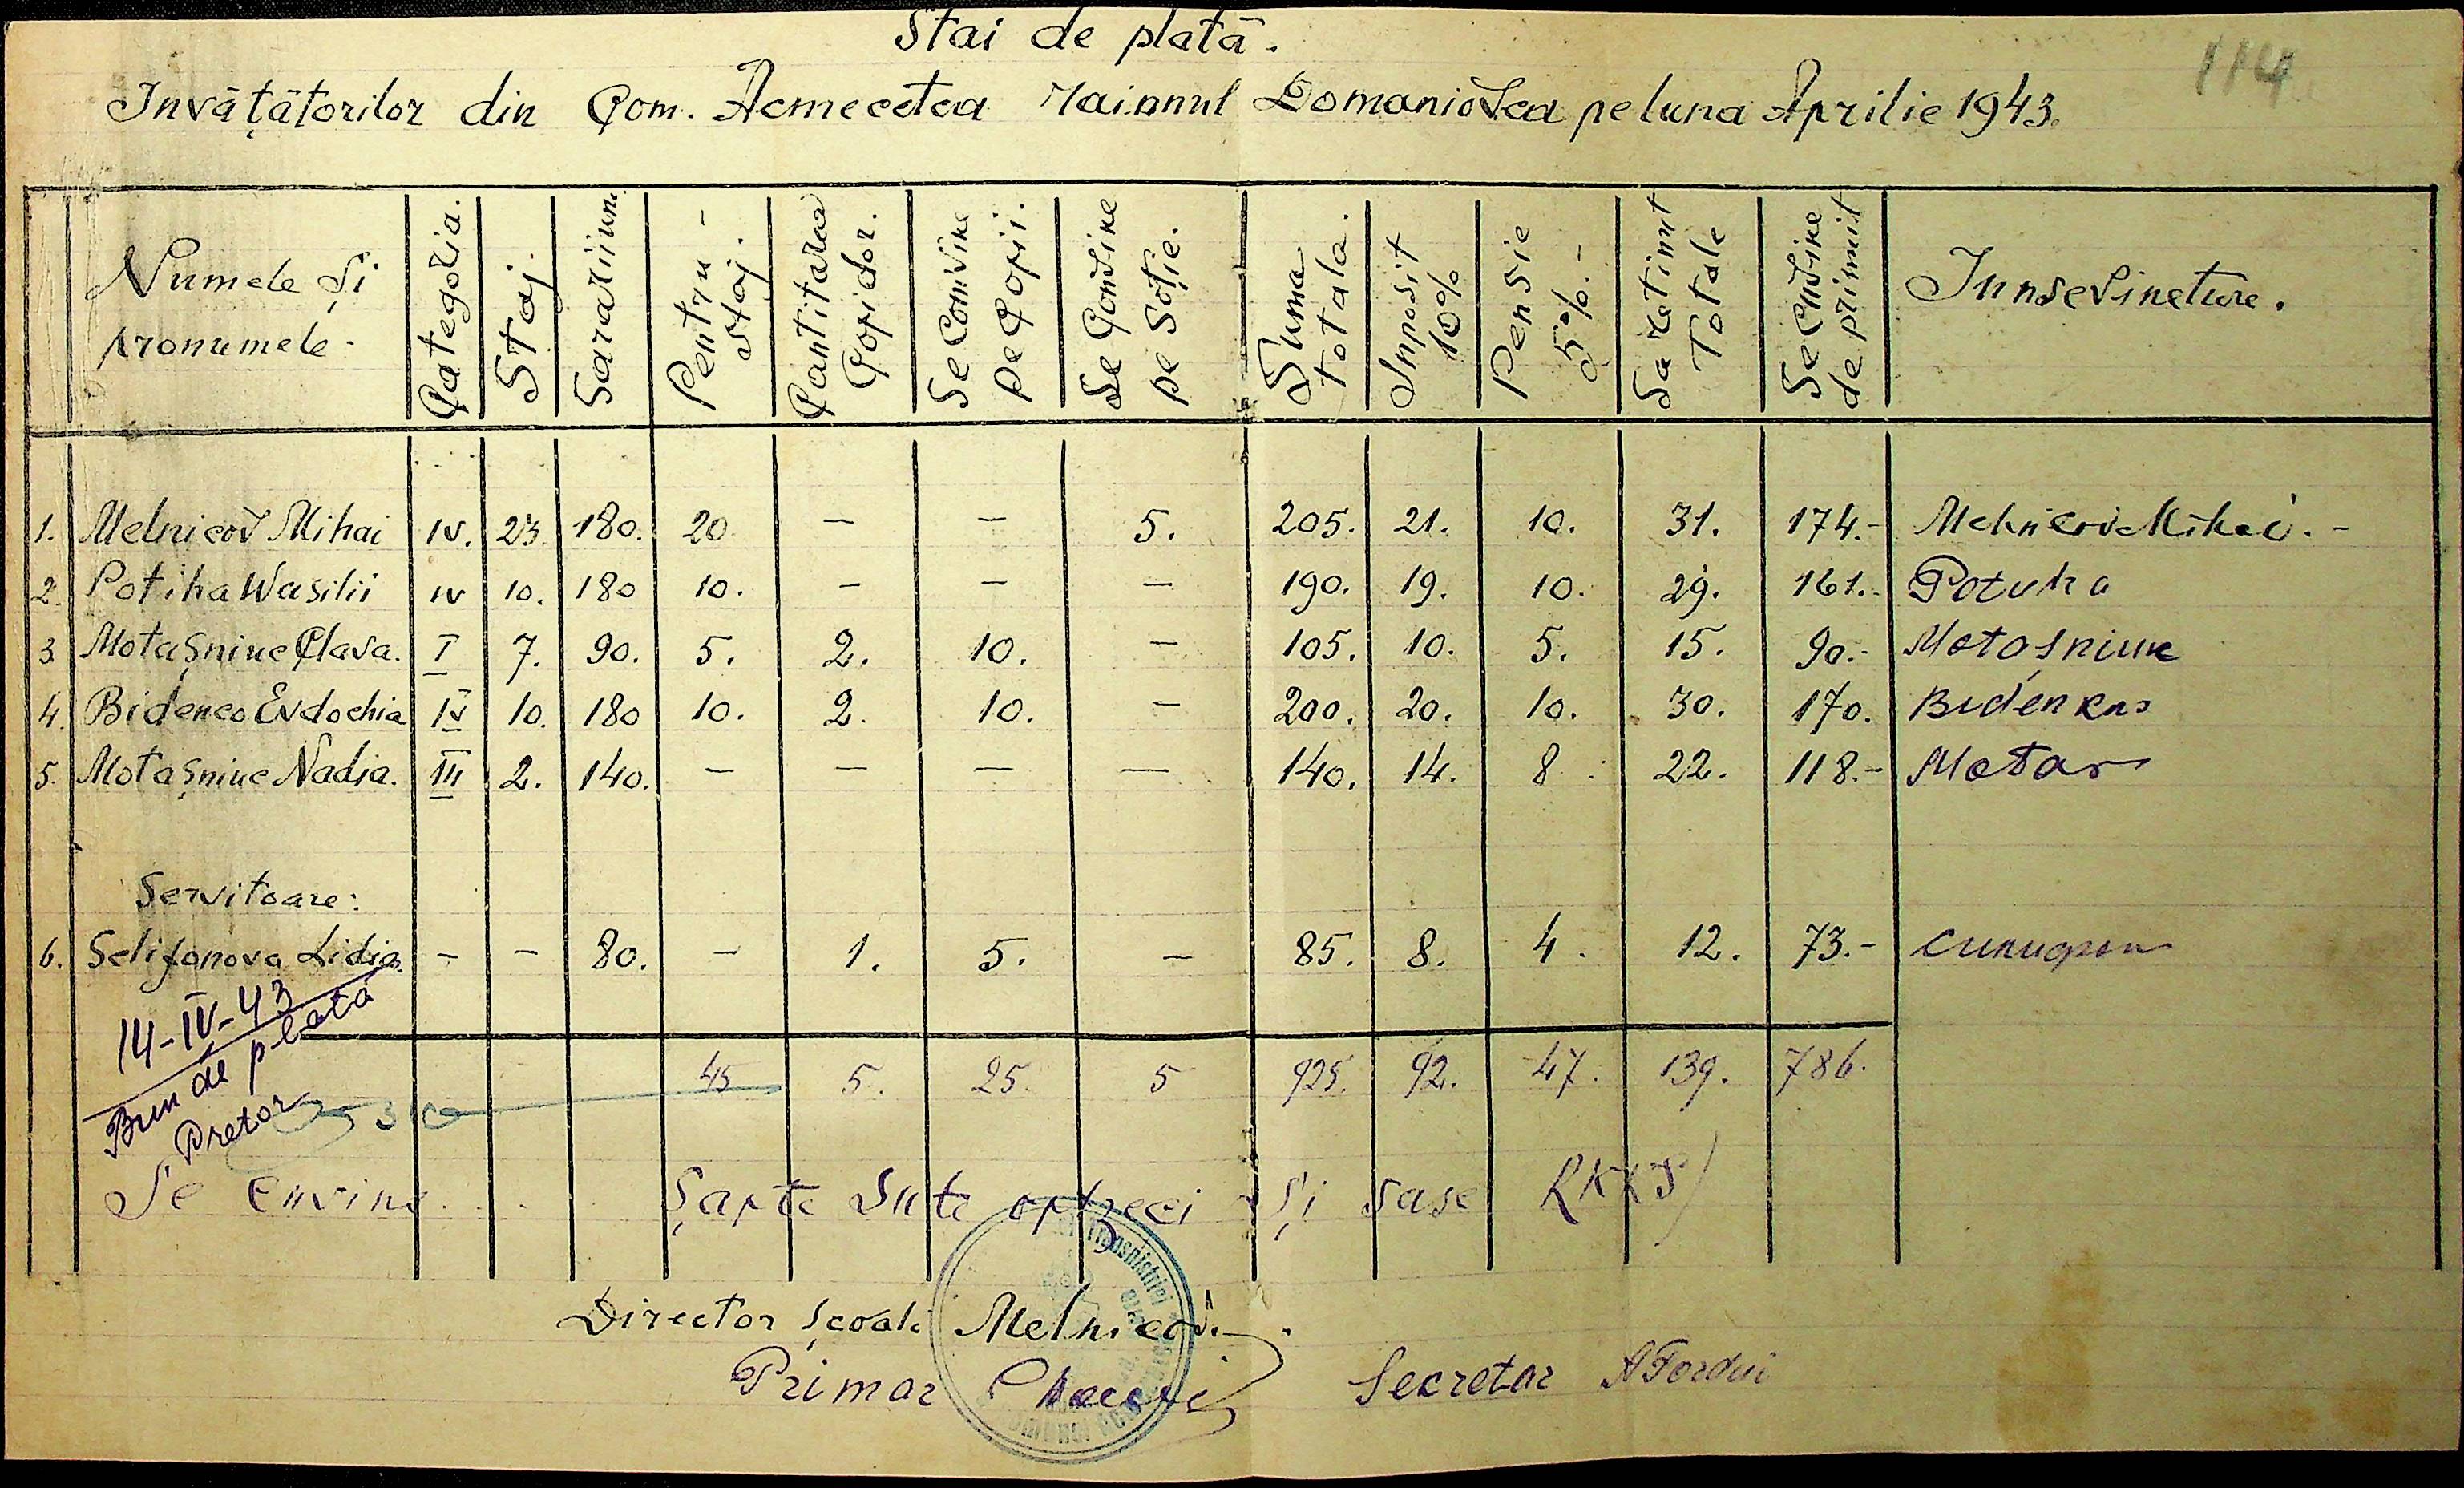 Stai de plată.
114
Invățătorilor din Com. Acmecetca Raionul Domaniovca pe luna Aprilie 1943.
Numele și pronumele. Categoria. Staj. Sarariiun. Pentru - staj. Cantitatea Copiilor. Se Convine pe Copii. Se Convine pe Soție. Suma totala. Imposit 10% Pensie 5%.- Sa retinut Totale Se Cuvine de primit Iunseineture.
1. Melnicov Mihai IV. 23. 180. 20 — — 5. 205. 21. 10. 31. 174.- Melnicov Mihai. -
2. Potiha Wasilii IV 10. 180 10. — — — 190. 19. 10. 29. 161.- Potuha
3. Motașniuc Clava. I 7. 90. 5. 2. 10. — 105. 10. 5. 15. 90.- Motașniuc
4. Bidenco Evdochia IV 10. 180 10. 2. 10. — 200. 20. 10. 30. 170. Bidenko
5. Motașniuc Nadia. III 2. 140. — — — — 140. 14. 8. 22. 118.- Motas
Servitoare:
6. Selifonova Lidia. - - 80. - 1. 5. — 85. 8. 4. 12. 73.-
14-IV-43
Bun de plată
Pretor
45 5. 25. 5 925. 92. 47. 139. 786.
Se Cuvine . . . Șapte Sute optzeci și sase RKKS)
Director școale Melnicov.
Primar
Secretar